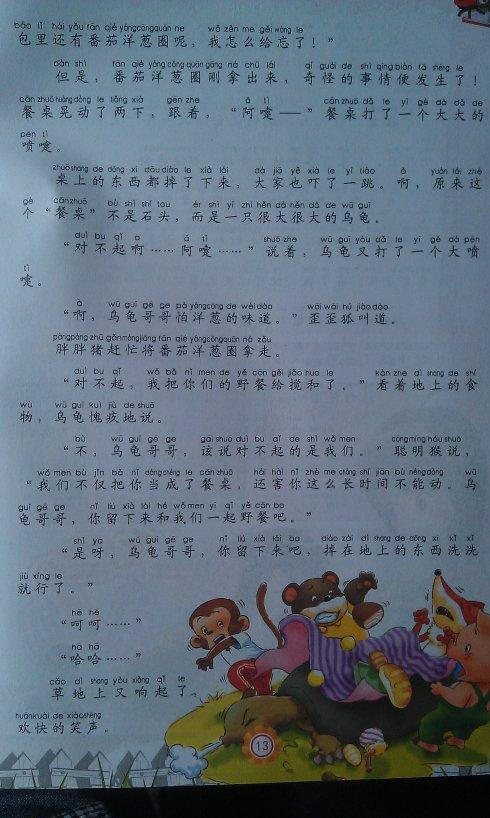 bāo lǐ hái yǒu fān qié yángcōngquān ne wǒ zěn me gěi wàng le
包里还有番茄洋葱圈呢，我怎么给忘了！”
dàn shì fān qié yáng cōng quān gāng ná chū lái qí guài de shì qing biàn fā shēng le
但是，番茄洋葱圈刚拿出来，奇怪的事情便发生了！
cān zhuō huàng dòng le liǎng xià gēn zhe ā tì cān zhuō dǎ le yí gè dà dà de
餐桌晃动了两下，跟着，“阿嚏——”餐桌打了一个大大的
pēn tì
喷嚏。
zhuō shang de dōng xi dōu diào le xià lái dà jiā yě xià le yí tiào ā yuán lái zhè
桌上的东西都掉了下来，大家也吓了一跳。啊，原来这
gè cān zhuō bú shì shí tou ér shì yì zhī hěn dà hěn dà de wū guī
个“餐桌”不是石头，而是一只很大很大的乌龟。
duì bu qǐ a ā tì shuō zhe wū guī yòu dǎ le yí gè dà pēn
“对不起啊……阿嚏……”说着，乌龟又打了一个大喷
tì
嚏。
à wū guī gē ge pà yángcōng de wèi dào wāi wāi hú jiào dào
“啊，乌龟哥哥怕洋葱的味道。”歪歪狐叫道。
pàngpàng zhū gǎnmángjiāng fān qié yángcōngquān ná zǒu
胖胖猪赶忙将番茄洋葱圈拿走。
duì bu qǐ wǒ bǎ nǐ men de yě cān gěi jiǎo huo le kàn zhe dì shang de shí
“对不起，我把你们的野餐给搅和了。”看着地上的食
wù wū guī kuì jiù de shuō
物，乌龟愧疚地说。
bù wū guī gē ge gāi shuō duì bu qǐ de shì wǒ men cōng míng hóu shuō
“不，乌龟哥哥，该说对不起的是我们。”聪明猴说，
wǒ men bù jǐn bǎ nǐ dàng chéng le cān zhuō hái hài nǐ zhè me cháng shí jiān bù néng dòng wū
“我们不仅把你当成了餐桌，还害你这么长时间不能动。乌
guī gē ge nǐ liú xià lái hé wǒ men yì qǐ yě cān ba
龟哥哥，你留下来和我们一起野餐吧。”
shì ya wū guī gē ge nǐ liú xià lái ba diào zài dì shang de dōng xi xǐ xǐ
“是呀，乌龟哥哥，你留下来吧，掉在地上的东西洗洗
jiù xíng le
就行了。”
hē hē
“呵呵……”
hā hā
“哈哈……”
cǎo dì shang yòu xiǎng qǐ le
草地上又响起了
huānkuài de xiàoshēng
欢快的笑声。
13